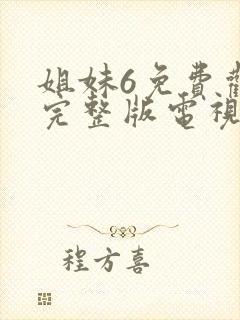 姐妹6免費
完整版電視
程方喜